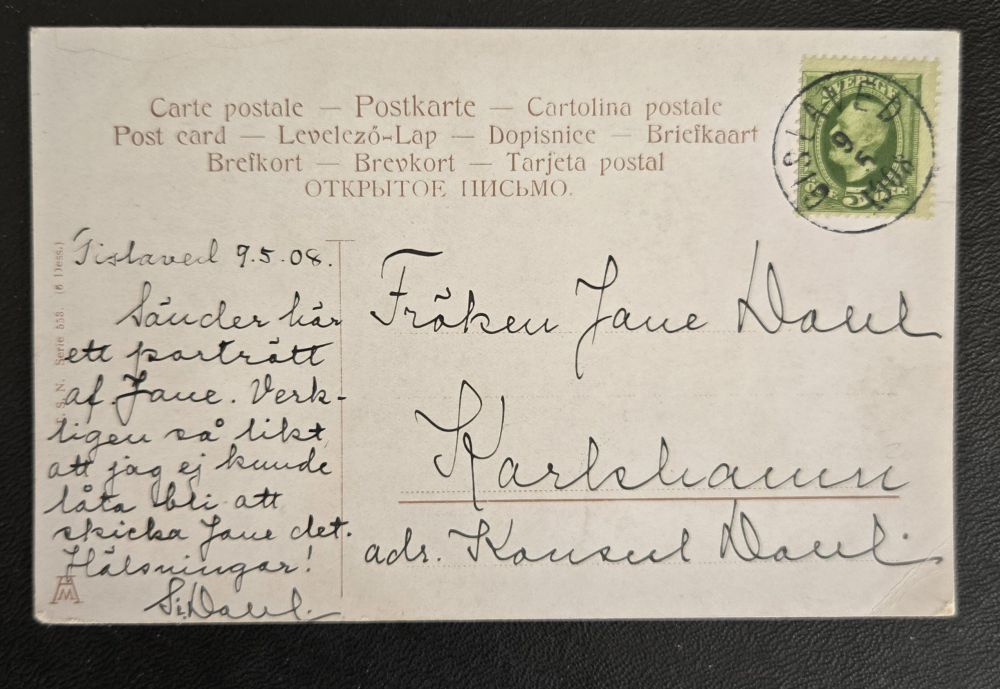 Carte postale — Postkarte — Cartolina postale
Post card — Levelező-Lap — Dopisnice — Briefkaart
Brefkort — Brevkort — Tarjeta postal
ОТКРЫТОЕ ПИСЬМО.
SVERIGE
5
GISLAVED
9 5
1908
S. N. Serie 558. (6 Dess.)
Gislaved 9.5.08.
Sänder här
ett porträtt
af Jane. Verk-
ligen så likt,
att jag ej kunde
låta bli att
skicka Jane det.
Hälsningar!
Dahl.
Fröken Jane Dahl
Karlshamn
adr. Konsul Dahl.